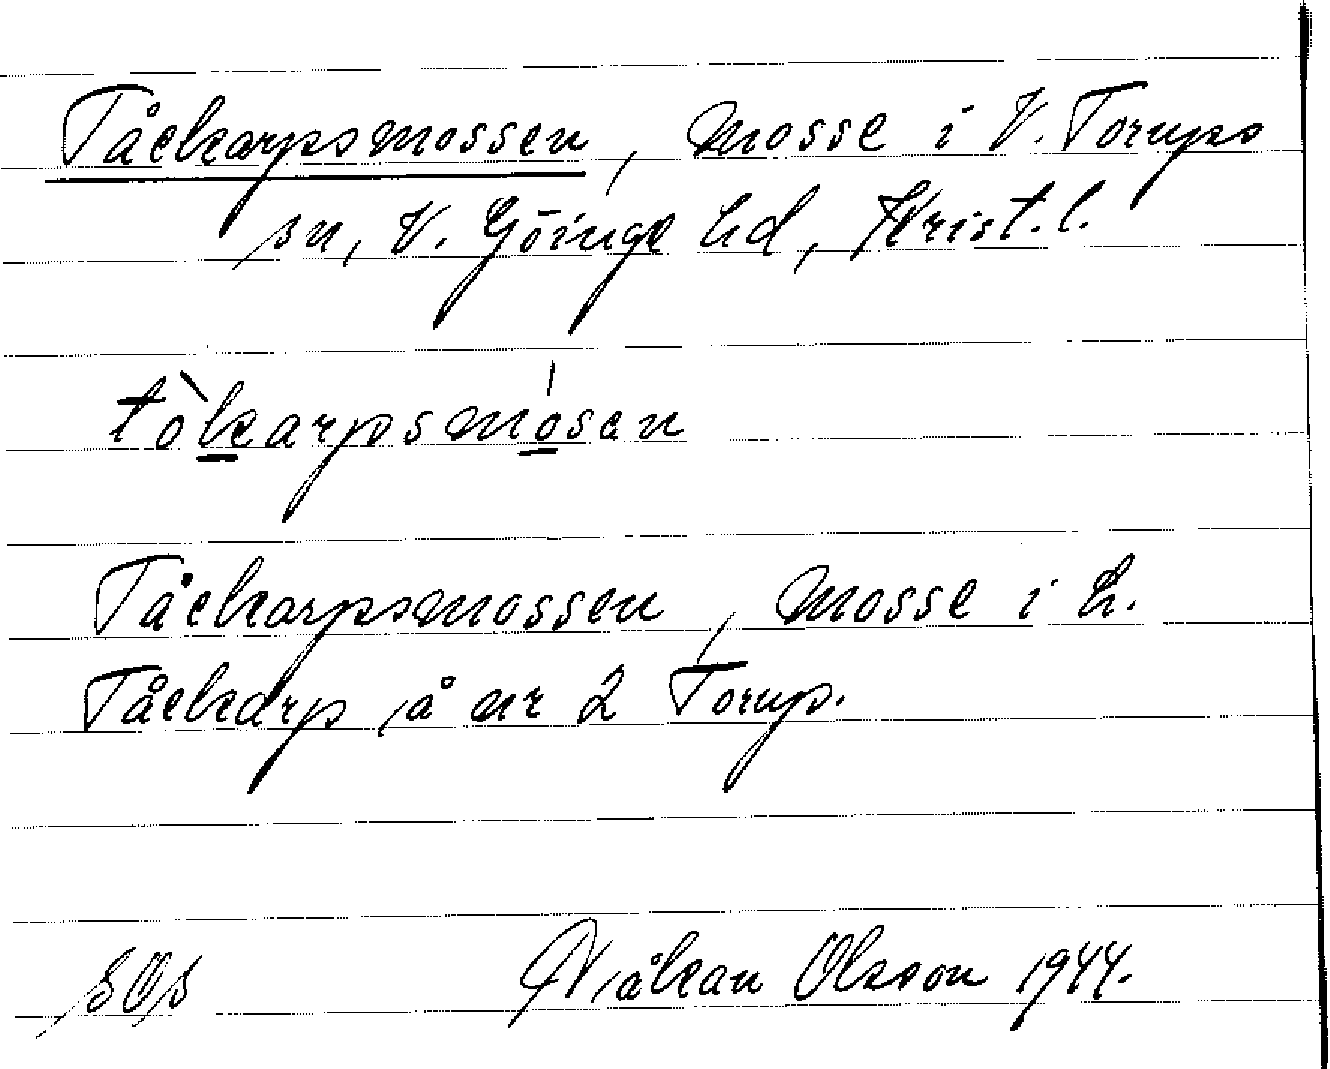 Tåckarpsmossen, Mosse i V. Torups
sn, V. Göinge hd, Krist. l.
tòkarpsmósen
Tåckarpsmossen, Mosse i h.
Tåckarp å nr 2 Torup.
SOS Håkan Olsson 1944.